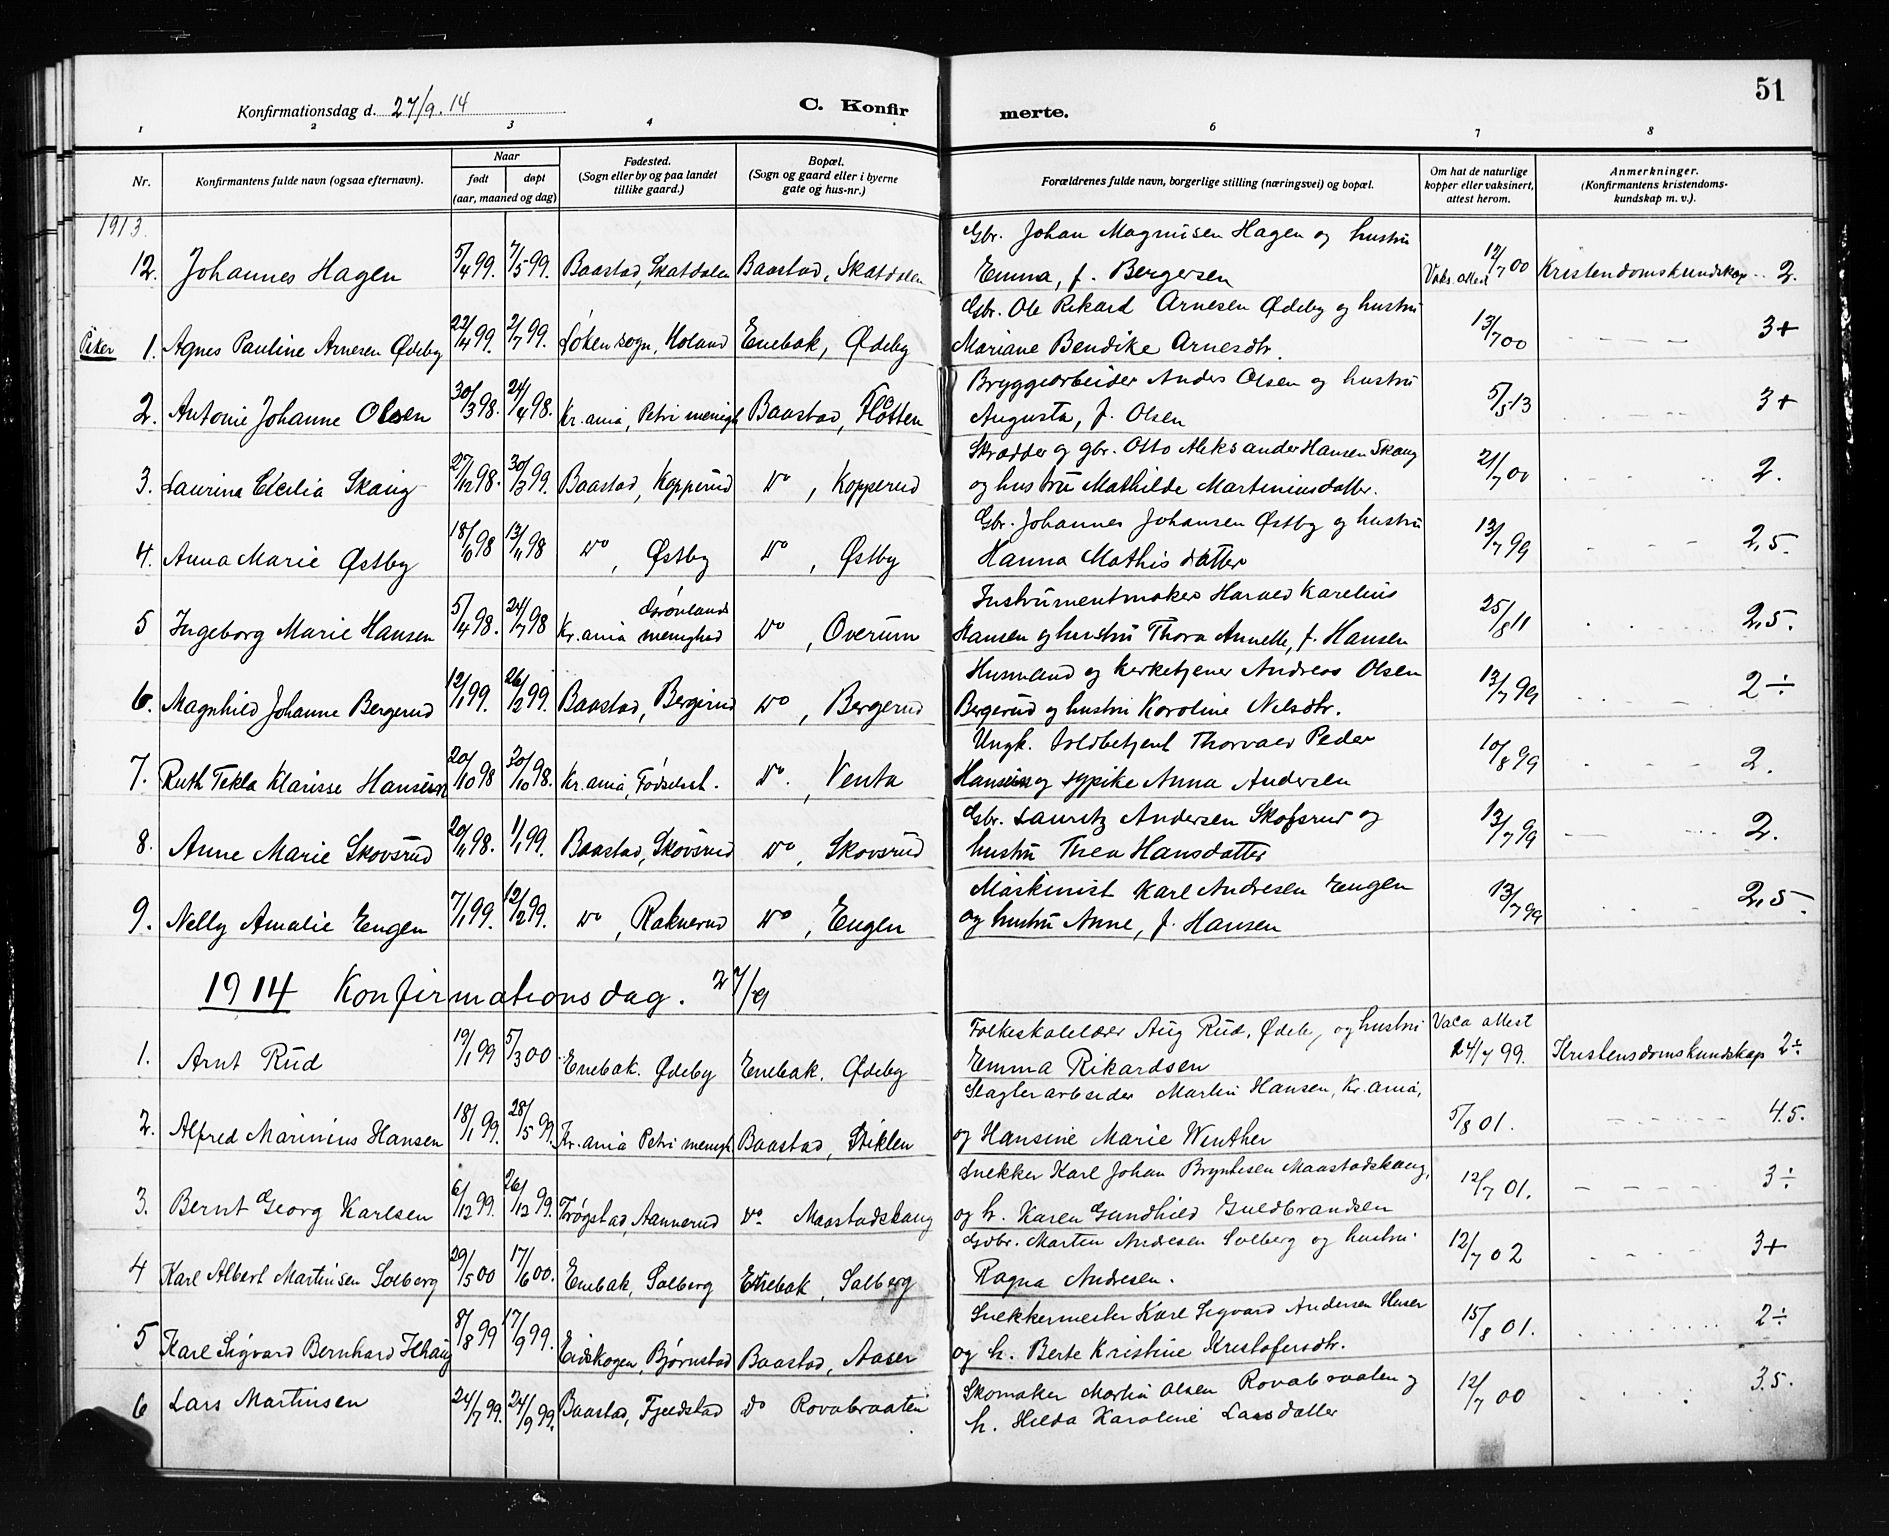 51
Konfirmationsdag d. 27/9. 14
C. Konfir
merte.
1 2 3 4 6 7 8
Nr.
Konfirmantens fulde navn (ogsaa efternavn).
Naar
født døpt
(aar, maaned og dag)
Fødested.
(Sogn eller by og paa landet
tillike gaard.)
Bopæl.
(Sogn og gaard eller i byerne
gate og hus-nr.)
Forældrenes fulde navn, borgerlige stilling (næringsvei) og bopæl.
Om hat de naturlige
kopper eller vaksinert,
attest herom.
Anmerkninger.
(Konfirmantens kristendoms-
kundskap m. v.).
1913.
Gbr. Johan Magnusen Hagen og hustru
12. Johannes Hagen 5/4 99. 7/5 99. Baastad, Skatdalen Baastad, Skatdalen Emma, f. Bergersen Vaks. attest 12/7 00 Kristendomskundskap 2.
Gbr. Ole Rikard Arnesen Ødeby og hustru
Piker 1. Agnes Pauline Arnesen Ødeby 22/4 99. 2/7 99. Løken sogn, Høland Enebak, Ødeby Mariane Bendike Arnesdtr. 13/7 00 3+
Bryggearbeider Anders Olsen og hustru
2. Antonie Johanne Olsen 30/3 98. 24/4 98. Kr.ania, Petri menigh Baastad, Flotten Augusta, f. Olsen 5/5 13 3+
Skrædder og gbr. Otto Aleksander Hansen Skaug
3. Laurina Cecilia Skaug 27/12 98. 30/3 99. Baastad, Kopperud Do, Kopperud og hustru Mathilde Martiniusdatter. 21/7 00 2.
Gbr. Johannes Johansen Østby og hustru
4. Anna Marie Østby 18/ 98 13/11 98 Do, Østby Do, Østby Hanna Mathisdatter 13/7 99 2,5.
Instrumentmaker Harald Karelius
5 Ingeborg Marie Hansen 5/4 98. 24/7 98 Kr.ania Grønlands menighed Do, Overum Hansen og hustru Thora Annette, f. Hansen 25/8 11 2,5.
Husmand og kirketjener Andreas Olsen
6. Magnhild Johanne Bergerud 12/1 99. 26/2 99. Baastad, Bergerud Do, Bergerud Bergerud og hustru Karoline Nilsdtr. 13/7 99 2÷
Ungk. toldbetjent Thorvald Peder
7. Ruth Tekla Klarisse Hansen 20/10 98 30/10 98. Kr.ania, Fødselsst. Do., Venta Hansen og sypike Anna Andersen 10/8 99 2.
Gbr. Lauritz Andersen Skofsrud og
8. Anne Marie Skovsrud 20/11 98. 1/1 99. Baastad, Skovsrud Do, Skovsrud hustru Thea Hansdatter 13/7 99 2.
Maskinist Karl Andresen Engen
9. Nelly Amalie Engen 7/1 99. 12/2 99. Do, Raknerud Do, Engen og hustru Anne, f. Hansen 13/7 99 2,5.
1914 Konfirmationsdag. 27/9
Folkeskolelærer Aug Rud, Ødeby, og hustru Vacc attest
1. Arnt Rud 19/1 99 5/3 00 Enebak. Ødeby Enebak. Ødeby Emma Rikardsen 24/7 99. Kristensdomskundskap 2÷
Slagterarbeider Martin Hansen, Kr.ania,
2. Alfred Marinius Hansen 18/1 99. 28/5 99. Kr.ania Petri menigh Baastad, Stiklen og Hansine Marie Winther 5/8 01. 4.5.
Snekker Karl Johan Bryntesen Maastadskaug,
3. Bernt Georg Karlsen 6/12 99. 26/12 99. Trøgstad, Aannerud Do. Maastadskaug og h. Karen Gundhild Guldbrandsen 12/7 01. 3÷
Gbr. Martin Andresen Solberg og hustru
4 Karl Albert Martinsen Solberg 29/5 00 17/6 00. Enebak, Solberg Enebak, Solberg Ragna Andresen. 12/7 02 3+
Snekkermester Karl Sigvard Andersen Huser
5 Karl Sigvard Bernhard Haug 8/8 99 17/9 99. Eidskogen, Bjørnstad Baastad, Aaser og h. Berte Kristine Kristofersdtr. 15/8 01. 2÷
Skomaker Martin Olsen Rovabraaten og
6 Lars Martinsen 24/7 99. 24/9 99. Baastad, Fjeldstad Do Rovabraaten h. Hilda Karoline Larsdatter 12/7 00 3.5.